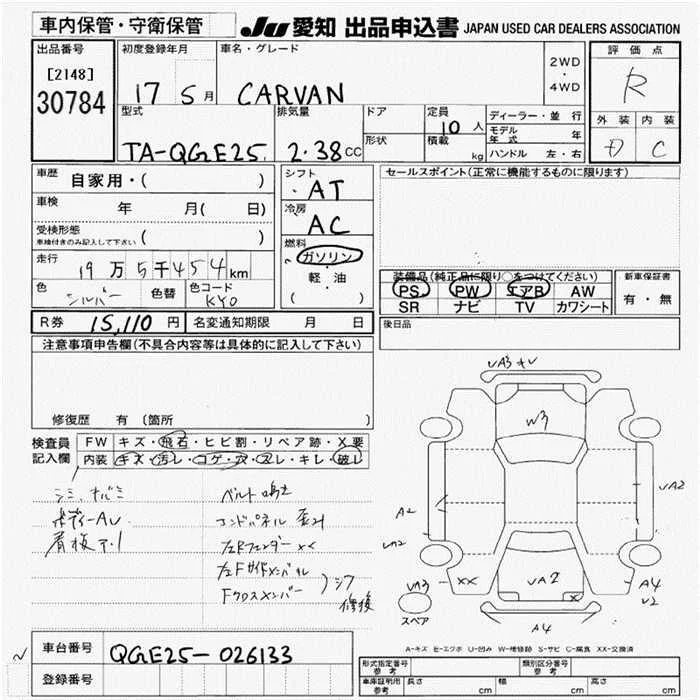 車内保管・守衛保管
JU 愛知 出品申込書 JAPAN USED CAR DEALERS ASSOCIATION
出品番号 初度登録年月 車名・グレード 2WD ・ 4WD 評価点
[2148] 30784 17 5月 CARVAN R
型式 排気量 ドア 定員 10人 ディーラー・並行 外装 内装
TA-QGE25 2.38CC 形状 積載 kg モデル年式 年 D C
ハンドル 左・右
車歴 自家用・( ) シフト AT セールスポイント(正常に機能するものに限ります)
車検 年 月( 日) 冷房 AC
受検形態 車検付きのみ記入して下さい ( )
燃料 ガソリン・軽油 ( )
走行 19万5千454km
色 シルバー 色替 色コード KY0
装備品(純正品に限り○をつけてください) 新車保証書
PS PW エアB AW 有・無
SR ナビ TV カワシート
R券 15,110円 名変通知期限 月 日 後日品
注意事項申告欄(不具合内容等は具体的に記入して下さい)
修復歴 有 〔箇所 〕
検査員記入欄 FW キズ・飛石・ヒビ割・リペア跡・X要
内装 キズ・汚レ・コゲ・穴・スレ・キレ・破レ
シミ、ナバミ ベルト鳴き
ボディーAU
看板アト
左Rフェンダーxx
左Fサイドメンバー
Fクロスメンバー
修復
VA3 キV
W3
A2
VA2
VA2
VA3
XX
VA2
X
A4
V2
A4
スペア
A-キズ E-エクボ U-凹み W-補修跡 S-サビ C-腐食 XX-交換済
車台番号 QGE25-026133
登録番号
形式指定番号 参考 類別区分番号 参考
車庫証明用 参考 長さ cm 幅 cm 高さ cm